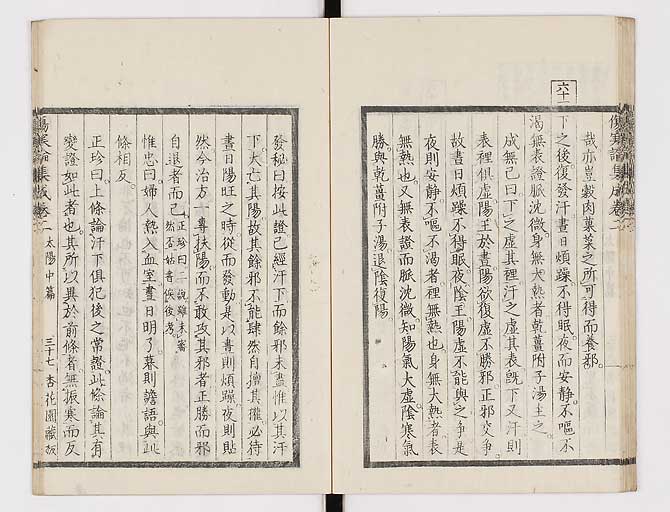 哉亦豈穀肉菓菜之所可得而養邪。
六十一
下之後復發汗晝日煩躁不得眠夜而安静不嘔不
渇無表證脈沈微身無大熱者乾薑附子湯主之。
成無己曰下之虚其裡汗之虚其表既下又汗則
表裡俱虚陽王於晝陽欲復虚不勝邪正邪交爭
故晝日煩躁不得眠夜陰王陽虚不能與之争是
夜則安静不嘔不渇者裡無熱也身無大熱者表
無熱也又無表證而脈沈微知陽氣大虚陰寒氣
勝與乾薑附子湯退陰復陽
發秘曰按此證已經汗下而餘邪未盡惟以其汗
下大亡其陽故其餘邪不能肆然自擅其權必待
晝日陽旺之時從而發動是以晝則煩躁夜則貼
然今治方一專扶陽而不敢攻其邪者正勝而邪
自退者而已正珍曰二説雖未審
然否姑書俟後考
惟忠曰婦人熱入血室晝日明了暮則譫語與此
條相反。
正珍曰上條論汗下俱犯後之常證此條論其有
變證如此者也其所以異於前條者無振寒而反
傷寒論集成卷二
太陽中篇
三十七
杏花園藏板